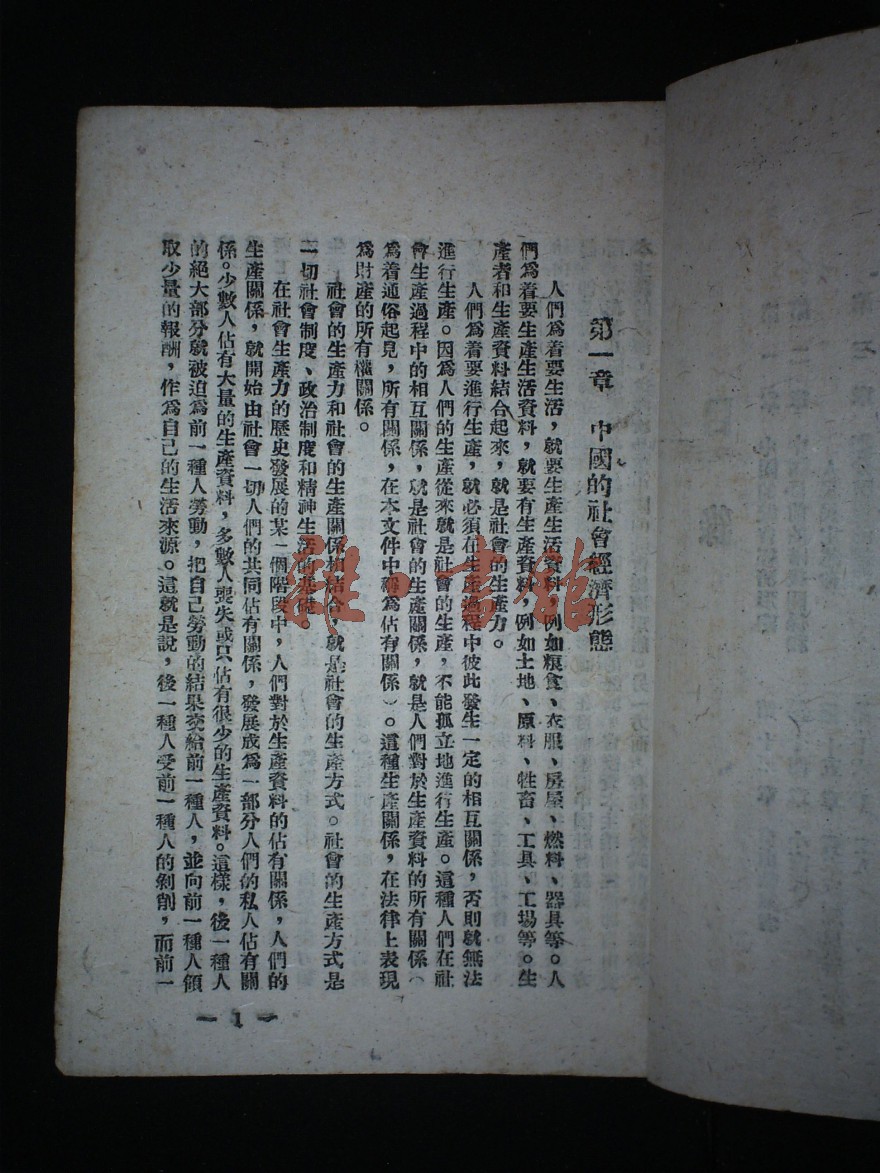 第一章　中國的社會經濟形態
人們爲着要生活，就要生產生活資料，例如糧食、衣服、房屋、燃料、器具等。人
們爲着要生產生活資料，就要有生產資料，例如土地、原料、牲畜、工具、工場等。生
產者和生產資料結合起來，就是社會的生產力。
人們爲着要進行生產，就必須在生產過程中彼此發生一定的相互關係，否則就無法
進行生產。因爲人們的生產從來就是社會的生產，不能孤立地進行生產。這種人們在社
會生產過程中的相互關係，就是社會的生產關係，就是人們對於生產資料的所有關係（
爲着通俗起見，所有關係，在本文件中稱爲佔有關係）。這種生產關係，在法律上表現
爲財產的所有權關係。
社會的生產力和社會的生產關係相結合，就是社會的生產方式。社會的生產方式是
一切社會制度、政治制度和精神生活的基礎。
在社會生產力的歷史發展的某一個階段中，人們對於生產資料的佔有關係，人們的
生產關係，就開始由社會一切人們的共同佔有關係，發展成爲一部分人們的私人佔有關
係。少數人佔有大量的生產資料，多數人喪失或只佔有很少的生產資料。這樣，後一種人
的絕大部分就被迫爲前一種人勞動，把自己勞動的結果交給前一種人，並向前一種人領
取少量的報酬，作爲自己的生活來源。這就是說，後一種人受前一種人的剝削，而前一
— 1 —
雜·書館